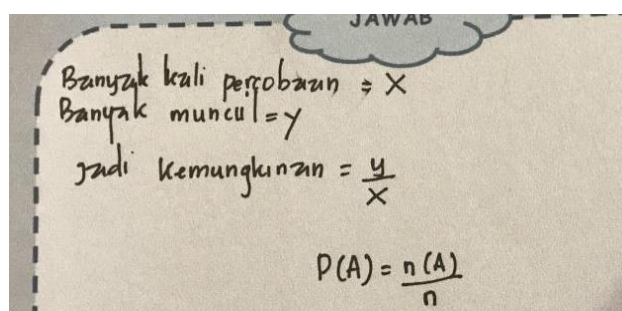 JAWAB
Banyak kali percobaan = X
Banyak muncul = y
jadi kemungkinan = y/x
P(A) = n(A)/n